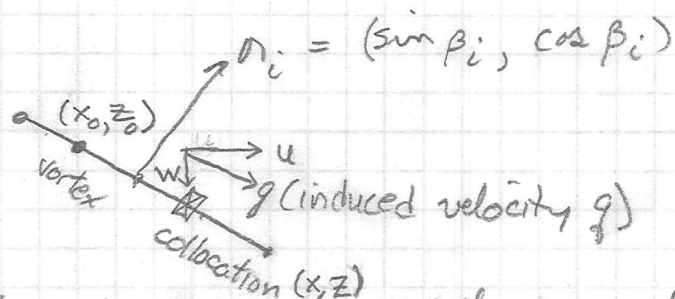 n_i = (sin β_i, cos β_i)
(x_0, z_0)
vortex
w
u
q (induced velocity q)
collocation (x, z)